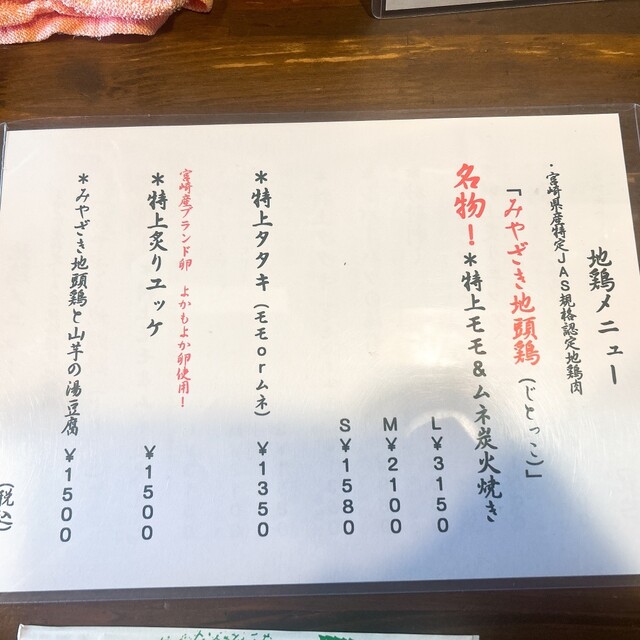 地鶏メニュー
・宮崎県産特定JAS規格認定地鶏肉
「みやざき地頭鶏（じとっこ）」
名物！＊特上モモ&ムネ炭火焼き
L￥3150
M￥2100
S￥1580
＊特上タタキ（モモorムネ）￥1350
宮崎産ブランド卵　よかもよか卵使用！
＊特上炙りユッケ　￥1500
＊みやざき地頭鶏と山芋の湯豆腐　￥1500
（税込）